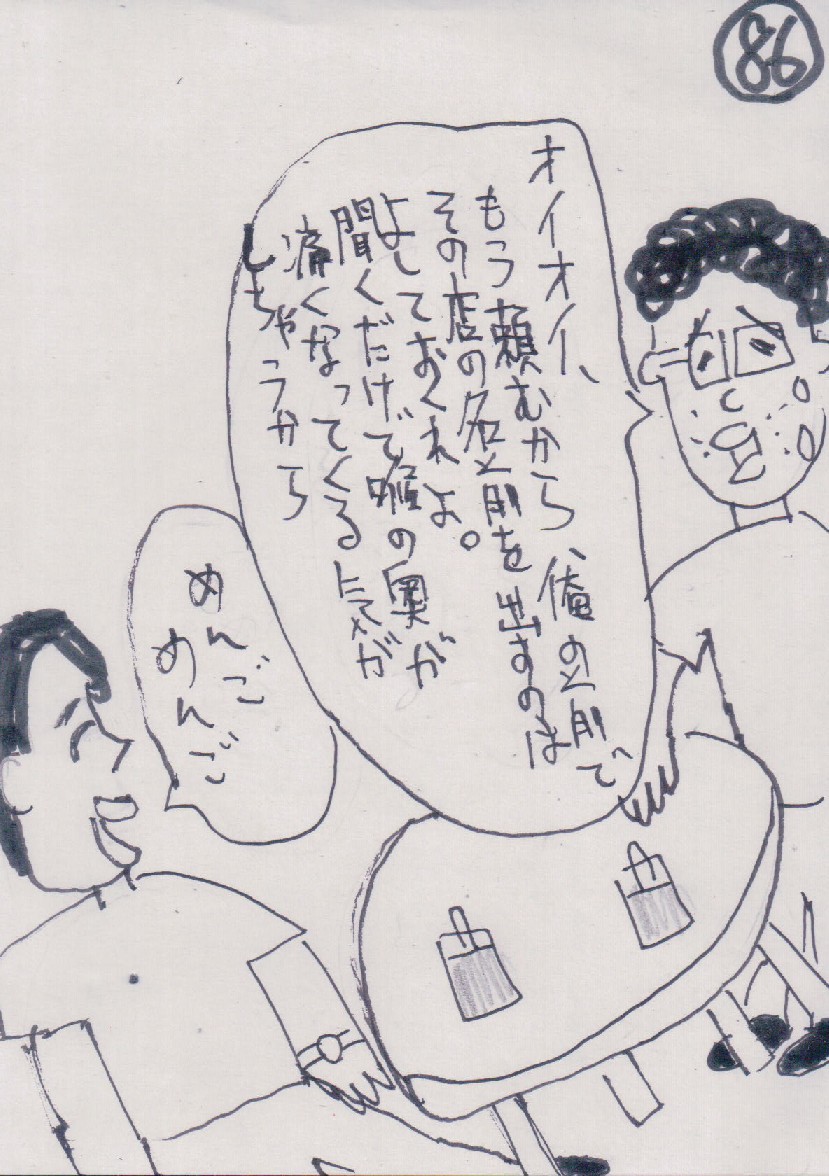 86
オイオイ、
もう頼むから、俺の前で
その店の名前を出すのは
よしておくれよ。
聞くだけで喉の奥が
痛くなってくる気が
しちゃうから
めんご
めんご